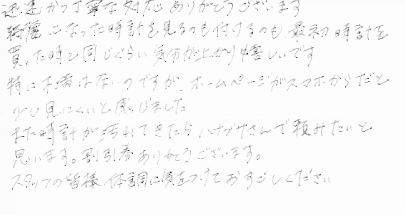 迅速かつ丁寧な対応ありがとうございます
綺麗になった時計を見るのも付けるのも、最初時計を
買った時と同じぐらい気分が上がり嬉しいです
特に不満はないのですが、ホームページがスマホからだと
少し見にくいと感じました
また時計が汚れてきたらハナブサさんで頼みたいと
思います。割引券ありがとうございます。
スタッフの皆様 体調に気をつけておすごしください